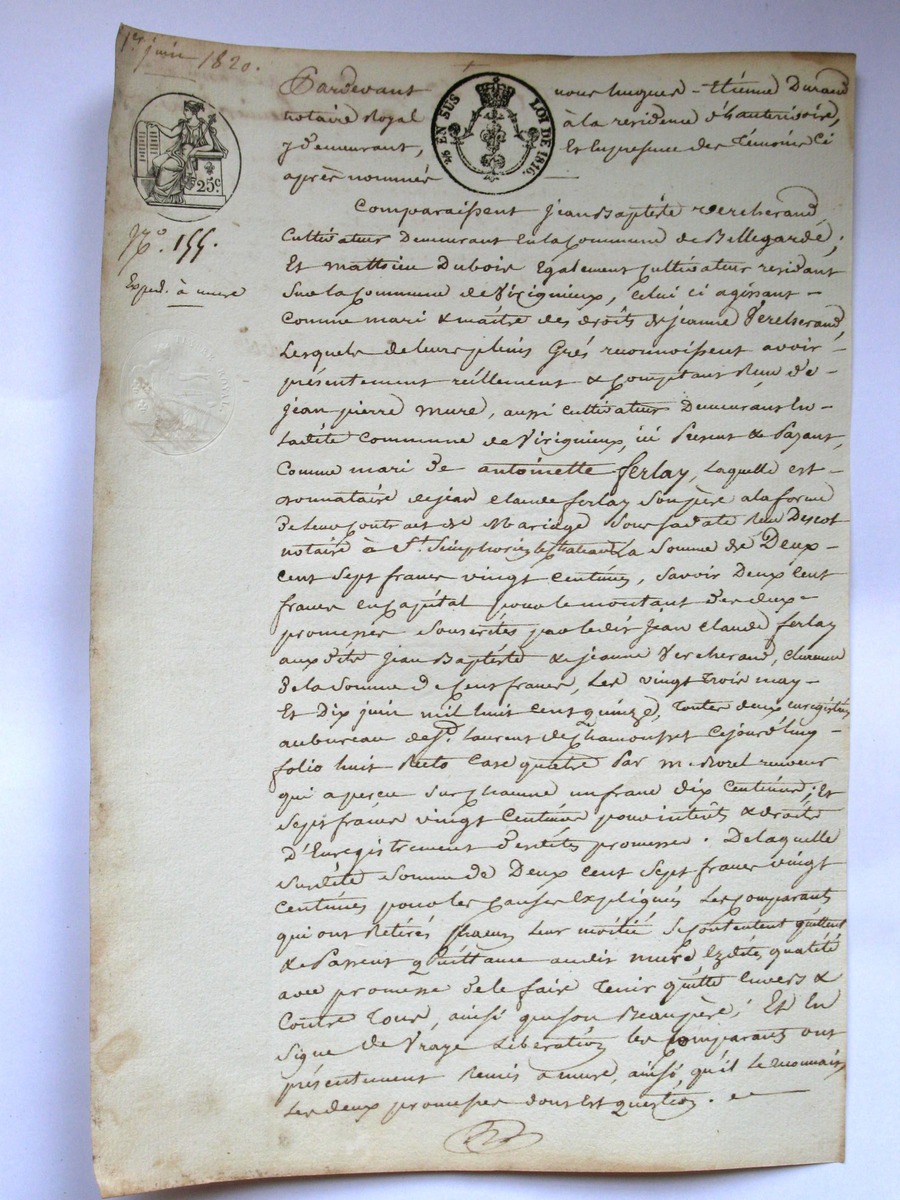 1er juin 1820.
Pardevant nous hugues-Etienne Durand
notaire Royal à la residence d'hauterivoire,
y demeurant, Et En presence des Témoins Ci
après nommés
25 EN SUS LOI DE 1816.
25c.
No. 155.
Exped. à mure
Comparaissent Jean Baptiste Vercherand,
Cultivateur Demeurant En la Commune de Bellegarde;
Et mathieu Dubois Egalement Cultivateur residant
Sur la Commune de Virigneux, Celui ci agissant
Comme mari & maitre des droits de jeanne Vercherand,
Lesquels de leurs pleins Grés reconnoissent avoir
présentement réellement & Comptant Reçu de
jean pierre mure, aussi Cultivateur Demeurant En
Ladite Commune de Virigneux, ici Present & Payant,
Comme mari de antoinette ferlay, Laquelle est
Donnataire de jean Claude ferlay Son père a la forme
de leur Contrat de Mariage Sous Sa date Reçu Descot
notaire à St. Simphorien le chateau, La Somme de Deux
Cent Sept francs vingt Centimes, Savoir Deux Cent
francs En Capital pour le montant des deux
promesses Souscrites par ledit Jean Claude ferlay
auxdits Jean Baptiste & jeanne Vercherand, Chacune
de la Somme de Cent francs, Les vingt trois may
Et Dix juin mil huit Cent quinze, toutes deux Enregistrées
au bureau de St. Laurent de Chamousset Cejourd'huy
folio huit Recto Case quatre Par m. Morel receveur
qui a perçu Sur Chacune un franc dix Centimes; Et
Sept francs vingt Centimes pour intérêts & droits
D'Enregistrement desdites promesses. De laquelle
Susdite Somme de Deux Cent Sept francs vingt
Centimes pour les Causes Expliqués Les Comparants
qui ont Retirés chacun Leur moitié Se Contentent quittent
& Passent quittance audit mure Esdites qualité
avec promesse de le faire Tenir quitte Envers &
Contre Tous, ainsi que Son Beaupère; Et En
Signe de Vraye Libération les Comparants ont
présentement Remis a mure, ainsi qu'il Le reconnait
Les deux promesses dont Est question.